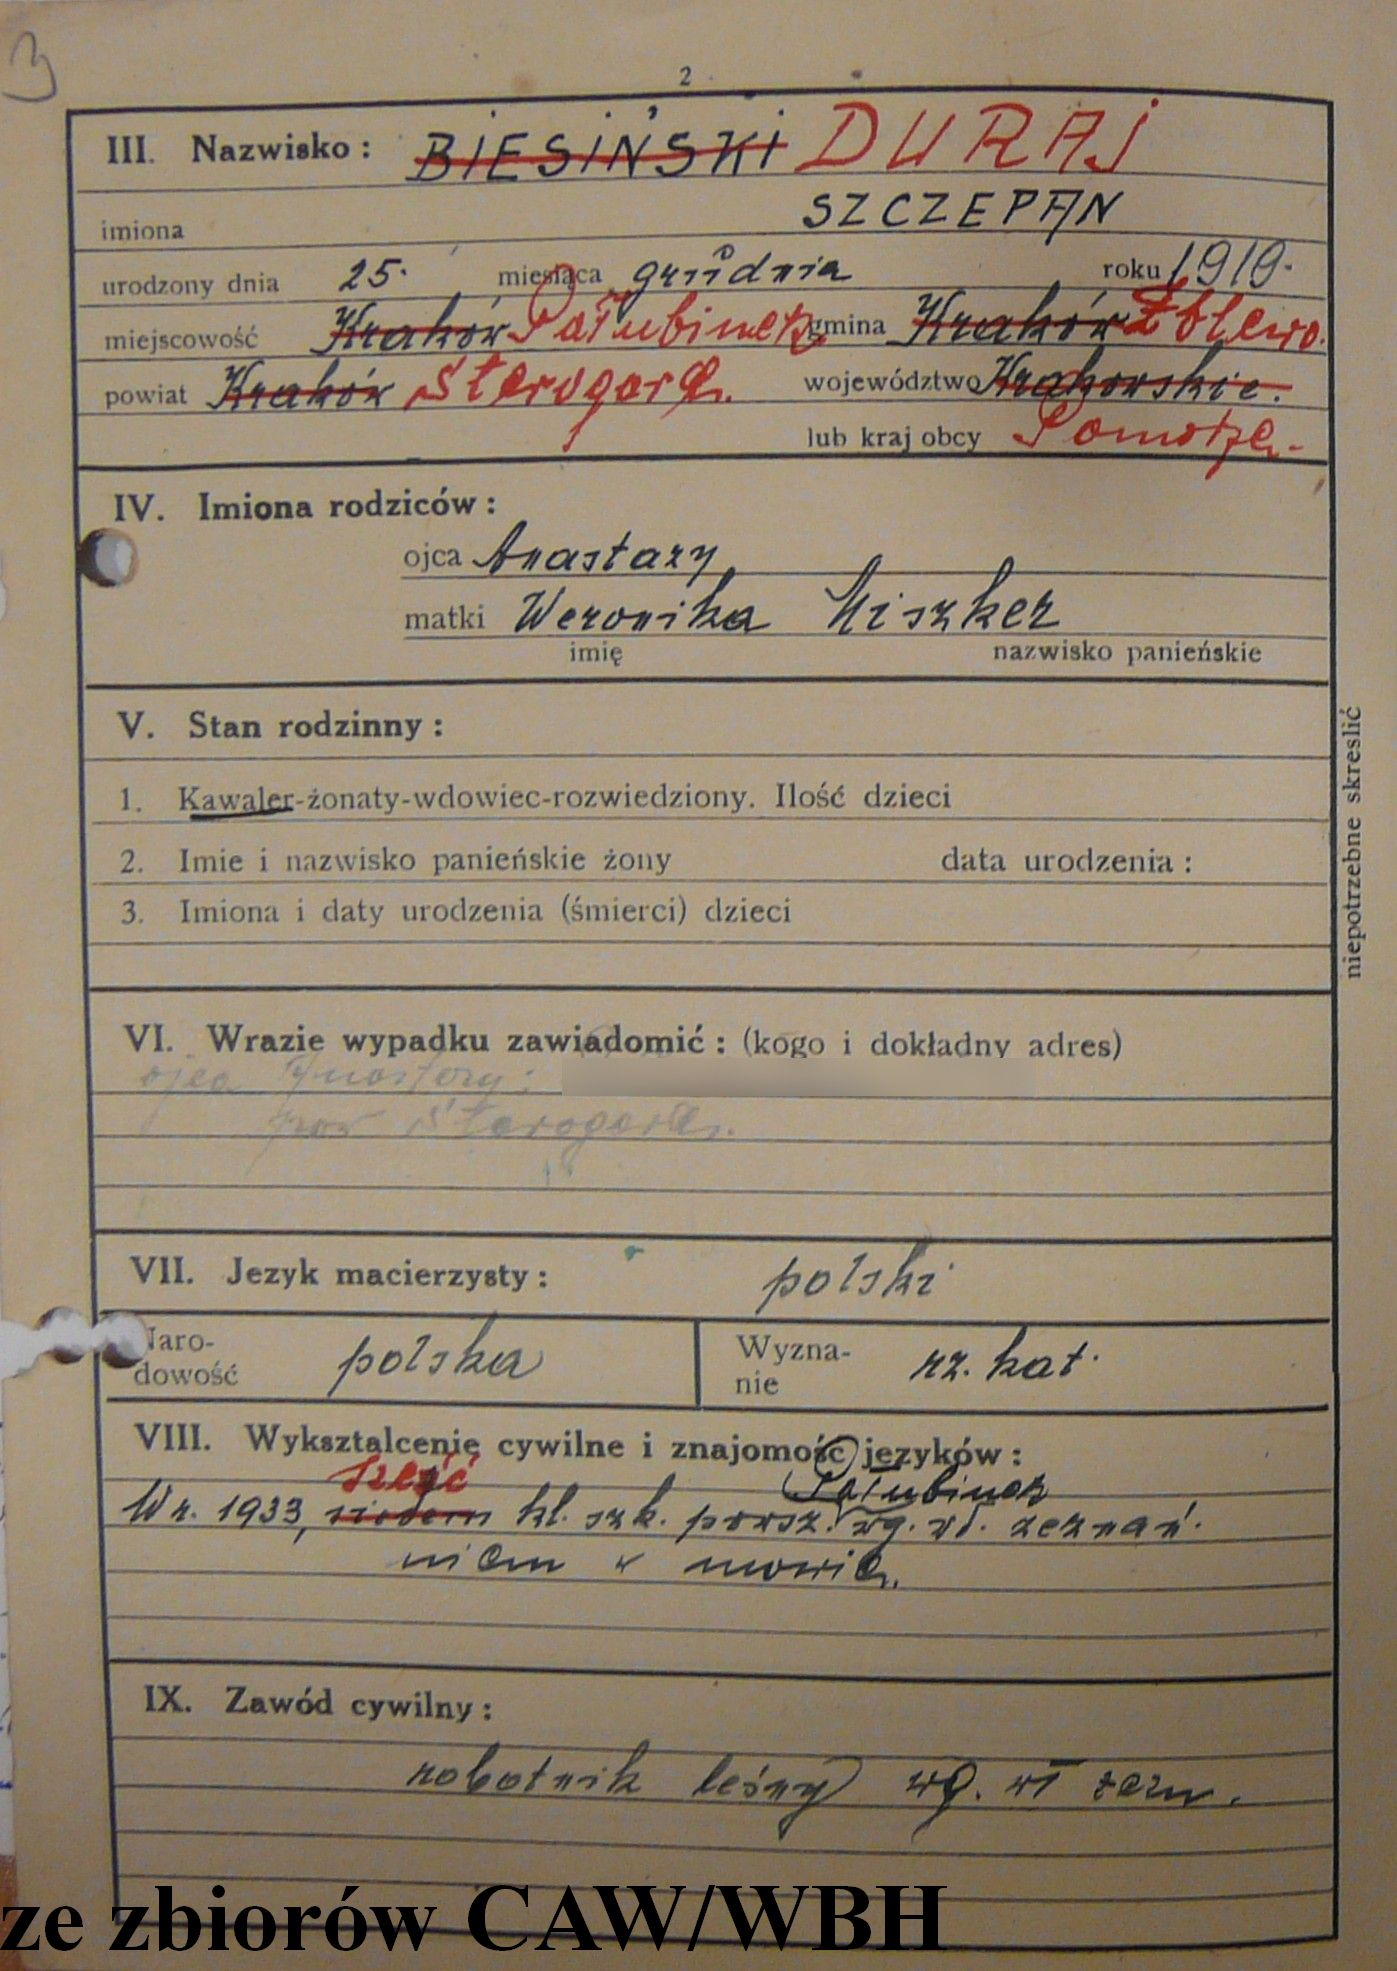 3
2
III. Nazwisko: BIESIŃSKI DURAJ
imiona SZCZEPAN
urodzony dnia 25. miesiąca grudnia roku 1919.
miejscowość Kraków Pałubinek gmina Kraków Zblewo.
powiat Kraków Starogard. województwo Krakowskie.
lub kraj obcy Pomorze.
IV. Imiona rodziców:
ojca Anastazy
matki Weronika Miszker
imię nazwisko panieńskie
V. Stan rodzinny:
1. Kawaler-żonaty-wdowiec-rozwiedziony. Ilość dzieci
2. Imie i nazwisko panieńskie żony data urodzenia:
3. Imiona i daty urodzenia (śmierci) dzieci
niepotrzebne skreslić
VI. Wrazie wypadku zawiadomić: (kogo i dokładny adres)
ojca Anastazy:
pow Starogard.
VII. Jezyk macierzysty: polski
Narodowość polska Wyznanie rz. kat.
VIII. Wyksztalcenie cywilne i znajomość języków:
sześć Pałubinek
W r. 1933, siedem kl. szk. powsz. wg. wł. zeznań.
niem w mowie.
IX. Zawód cywilny:
robotnik leśny wg. wł zezn.
ze zbiorów CAW/WBH